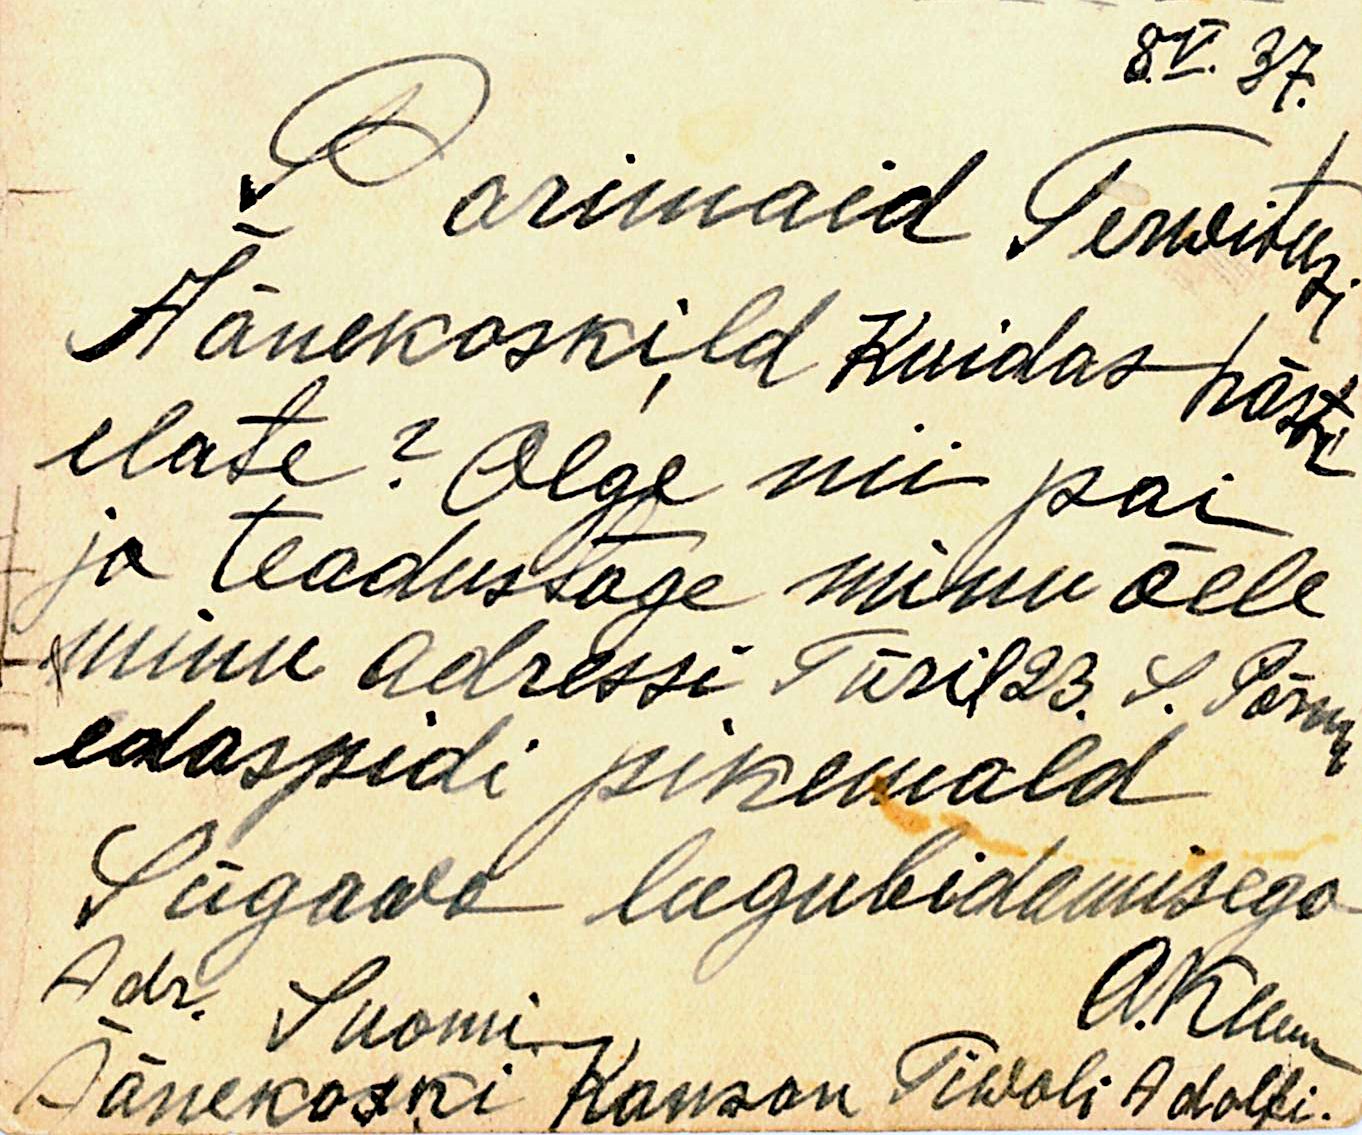 8.V. 37.
Parimaid Terwitusi
Äänekoskild Kuidas hästi
elate? Olge nii pai
ja teadustage minu õele
minu adressi Türil 23. S. Pärnu
edaspidi pikemald
Sügawa lugubidamisega
A. Kuum
Adr. Suomi
Äänekoski Kansan Tiwoli Adolfi.